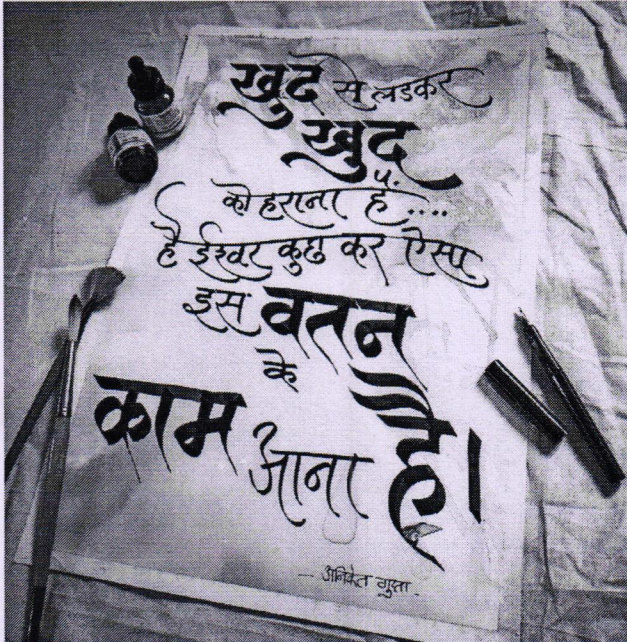 खुद से लडकर
खुद
को हराना है....
है ईश्वर कुछ कर ऐसा
इस वतन
के
काम आना है।
- अनिकेत गुप्ता.